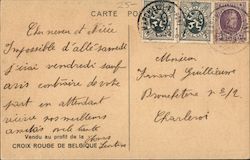 CARTE POSTALE
25-
Cher neveu et Nièce
Impossible d'allé samedi
j'irai vendredi sauf
avis contraire de votre
part en attendant
recevez nos meilleurs
Vendu au profit de la
CROIX ROUGE DE BELGIQUE
Monsieur
Fernand Guillaume
Charleroi